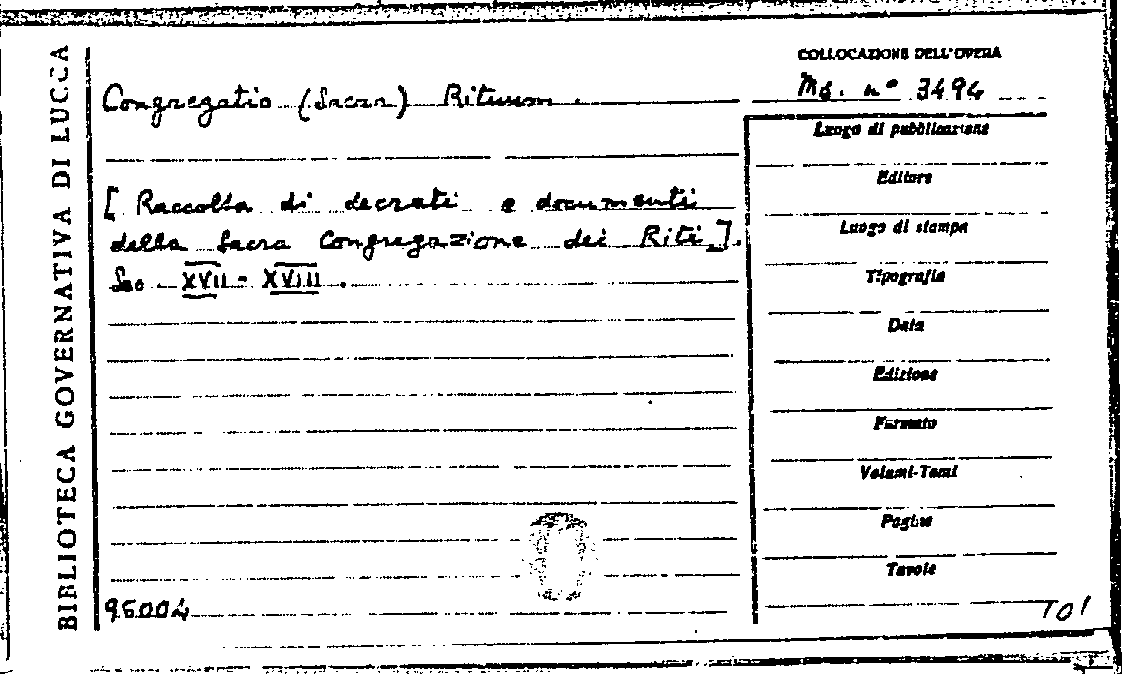 BIBLIOTECA GOVERNATIVA DI LUCCA
COLLOCAZIONE DELL'OPERA
Ms. n° 3494
Congregatio (Sacra) Rituum.
[Raccolta di decreti e documenti
della Sacra Congregazione dei Riti].
Sec XVII - XVIII.
95004
Luogo di pubblicazione
Editore
Luogo di stampa
Tipografia
Data
Edizione
Formato
Volumi-Tomi
Pagine
Tavole
101